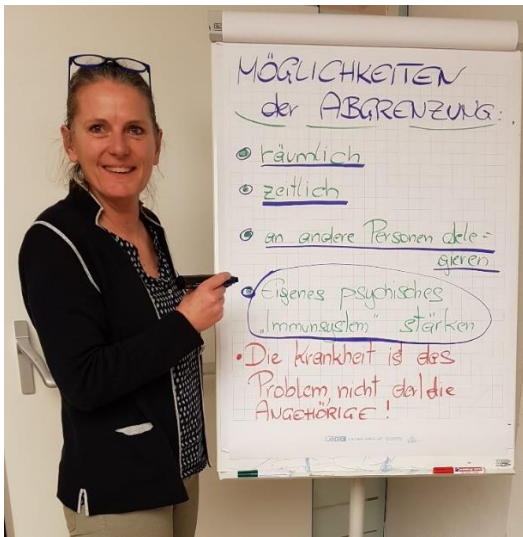 MÖGLICHKEITEN
der ABGRENZUNG:
räumlich
zeitlich
an andere Personen dele-
gieren
Eigenes psychisches
„Immunsystem" stärken
• Die Krankheit ist das
Problem, nicht der/die
ANGEHÖRIGE!